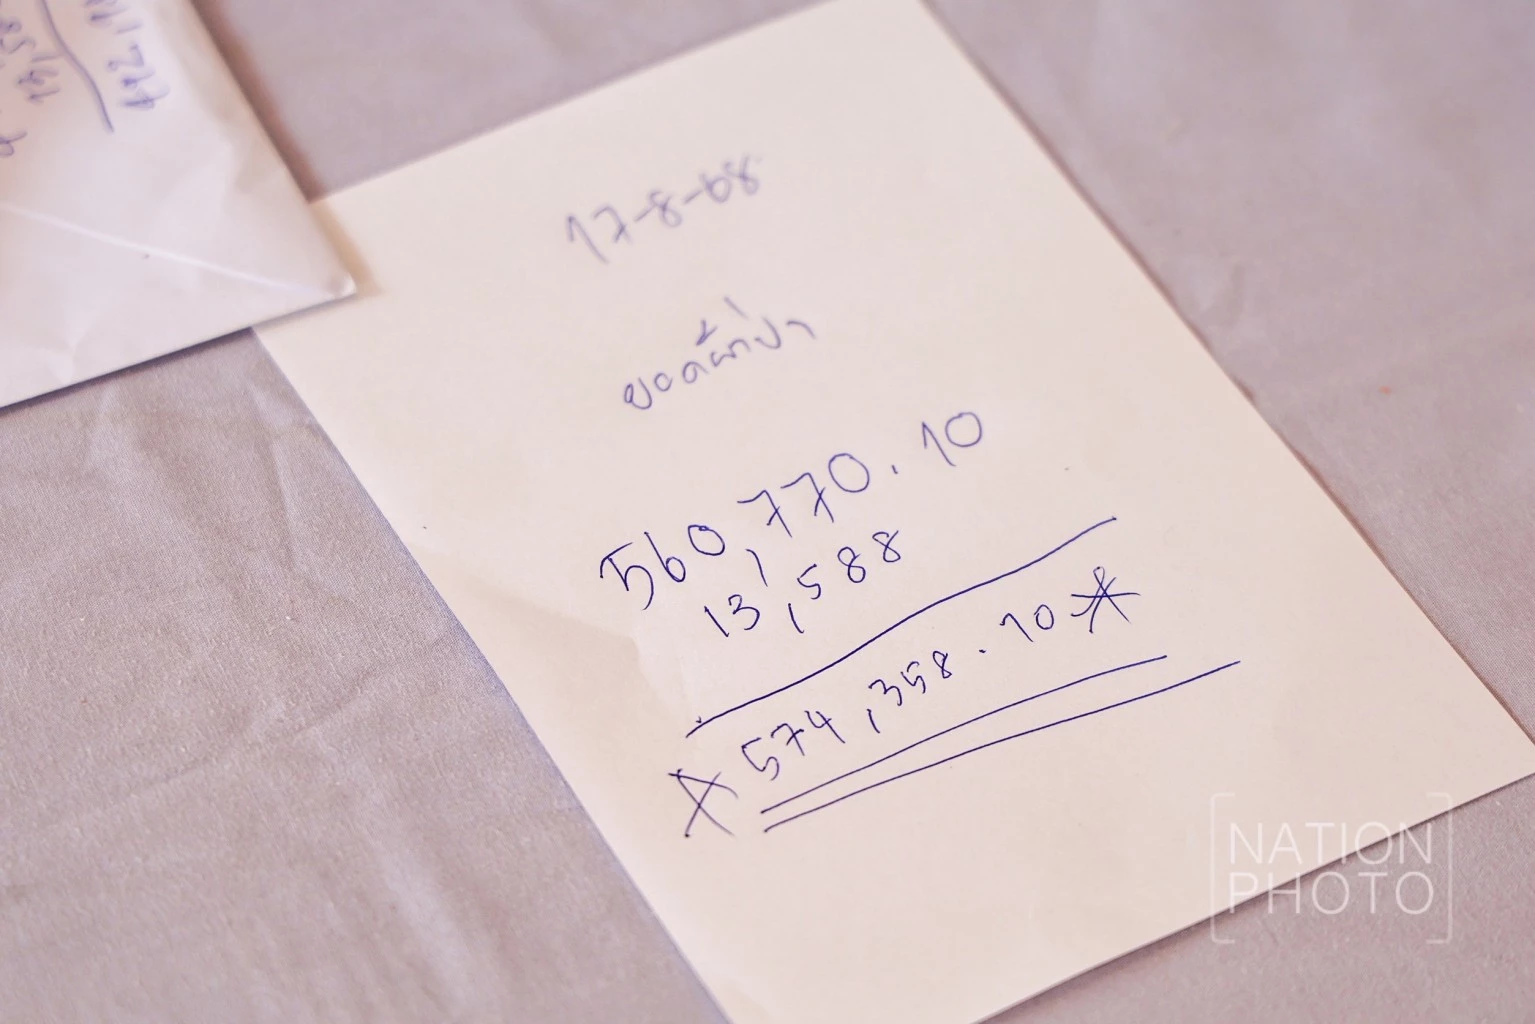 17-8-68
ยอดผ้าป่า
560,770.10
13,588
574,358.10
NATION
PHOTO